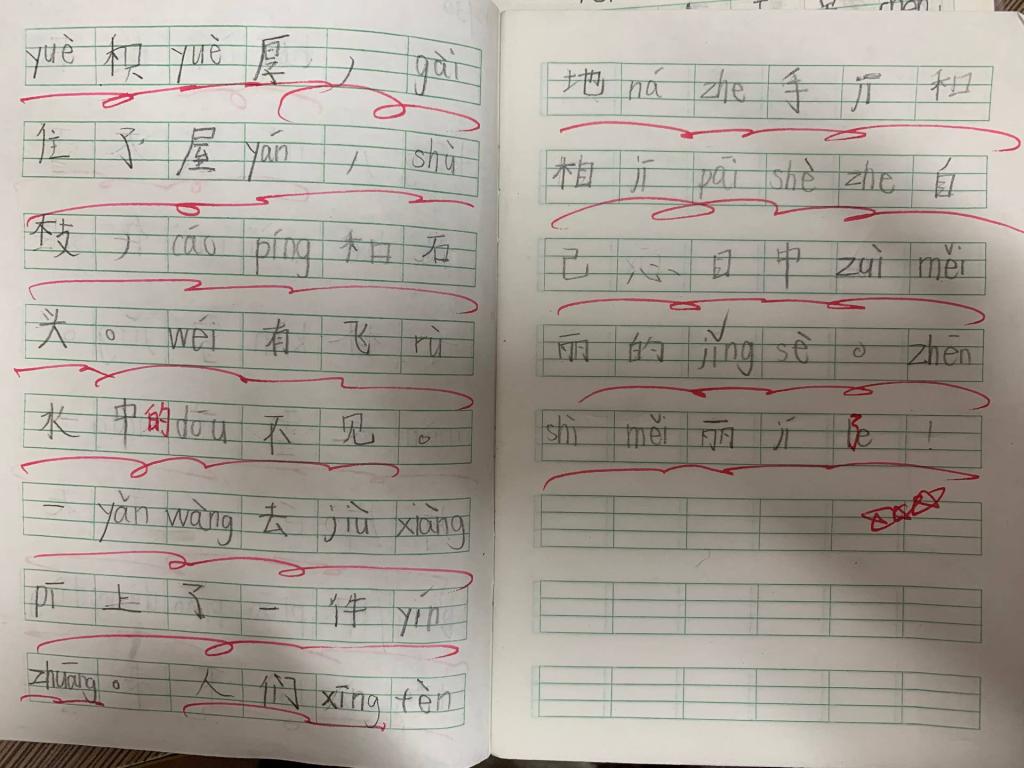 yuè 积 yuè 厚 , gài
住 了 屋 yán , shù
枝 , cáo píng 和 石
头 。 wéi 有 飞 rù
水 中 的 dōu 不 见 。
一 yǎn wàng 去 jiù xiàng
pī 上 了 一 件 yín
zhuāng 。 人 们 xīng fèn
地 ná zhe 手 jī 和
相 jī pāi shè zhe 自
己 心 目 中 zuì měi
丽 的 jǐng sè 。 zhēn
shì měi 丽 jí le !